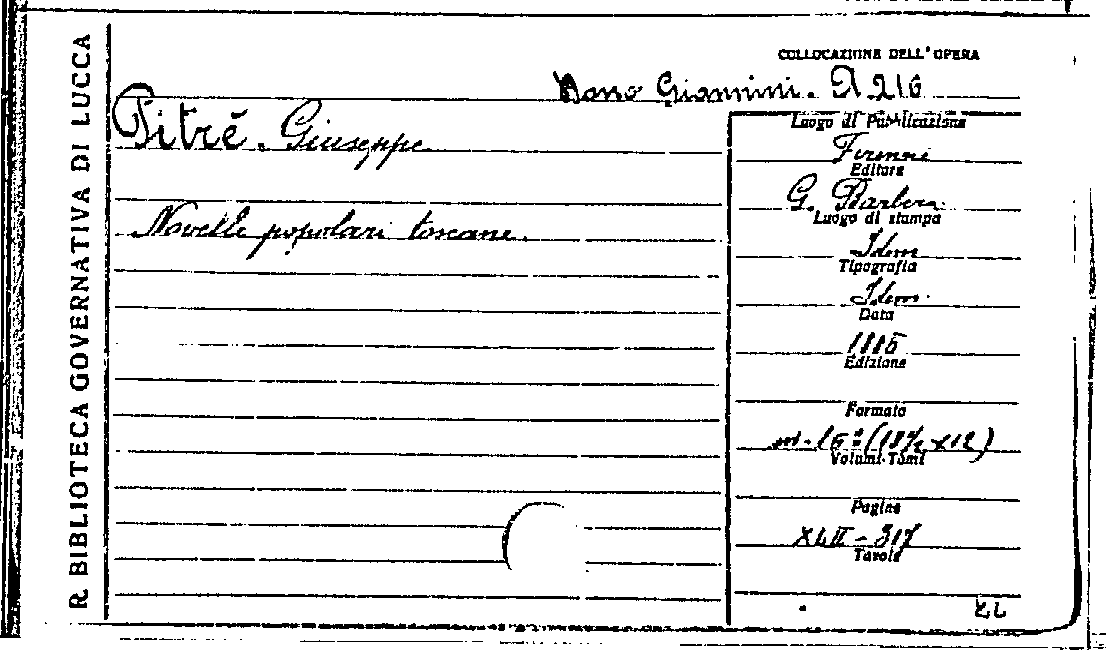 R. BIBLIOTECA GOVERNATIVA DI LUCCA
COLLOCAZIONE DELL'OPERA
Dono Giannini. A. 216
Pitré. Giuseppe
Novelle popolari toscane.
Luogo di Pubblicazione
Firenze
Editore
G. Barbera
Luogo di stampa
Idem
Tipografia
Idem.
Data
1885
Edizione
Formato
in-16º (18½x12)
Volumi-Tomi
Pagine
XLII-317
Tavole